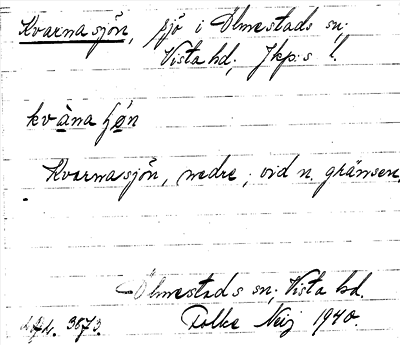 Kvarnasjön, sjö i Ölmestads sn;
Vista hd; Jkp:s l.
kvàna
Kvarnasjön, nedre; vid n. gränsen.
Ölmestads sn; Vista hd.
3873. Folke Neij 1940.